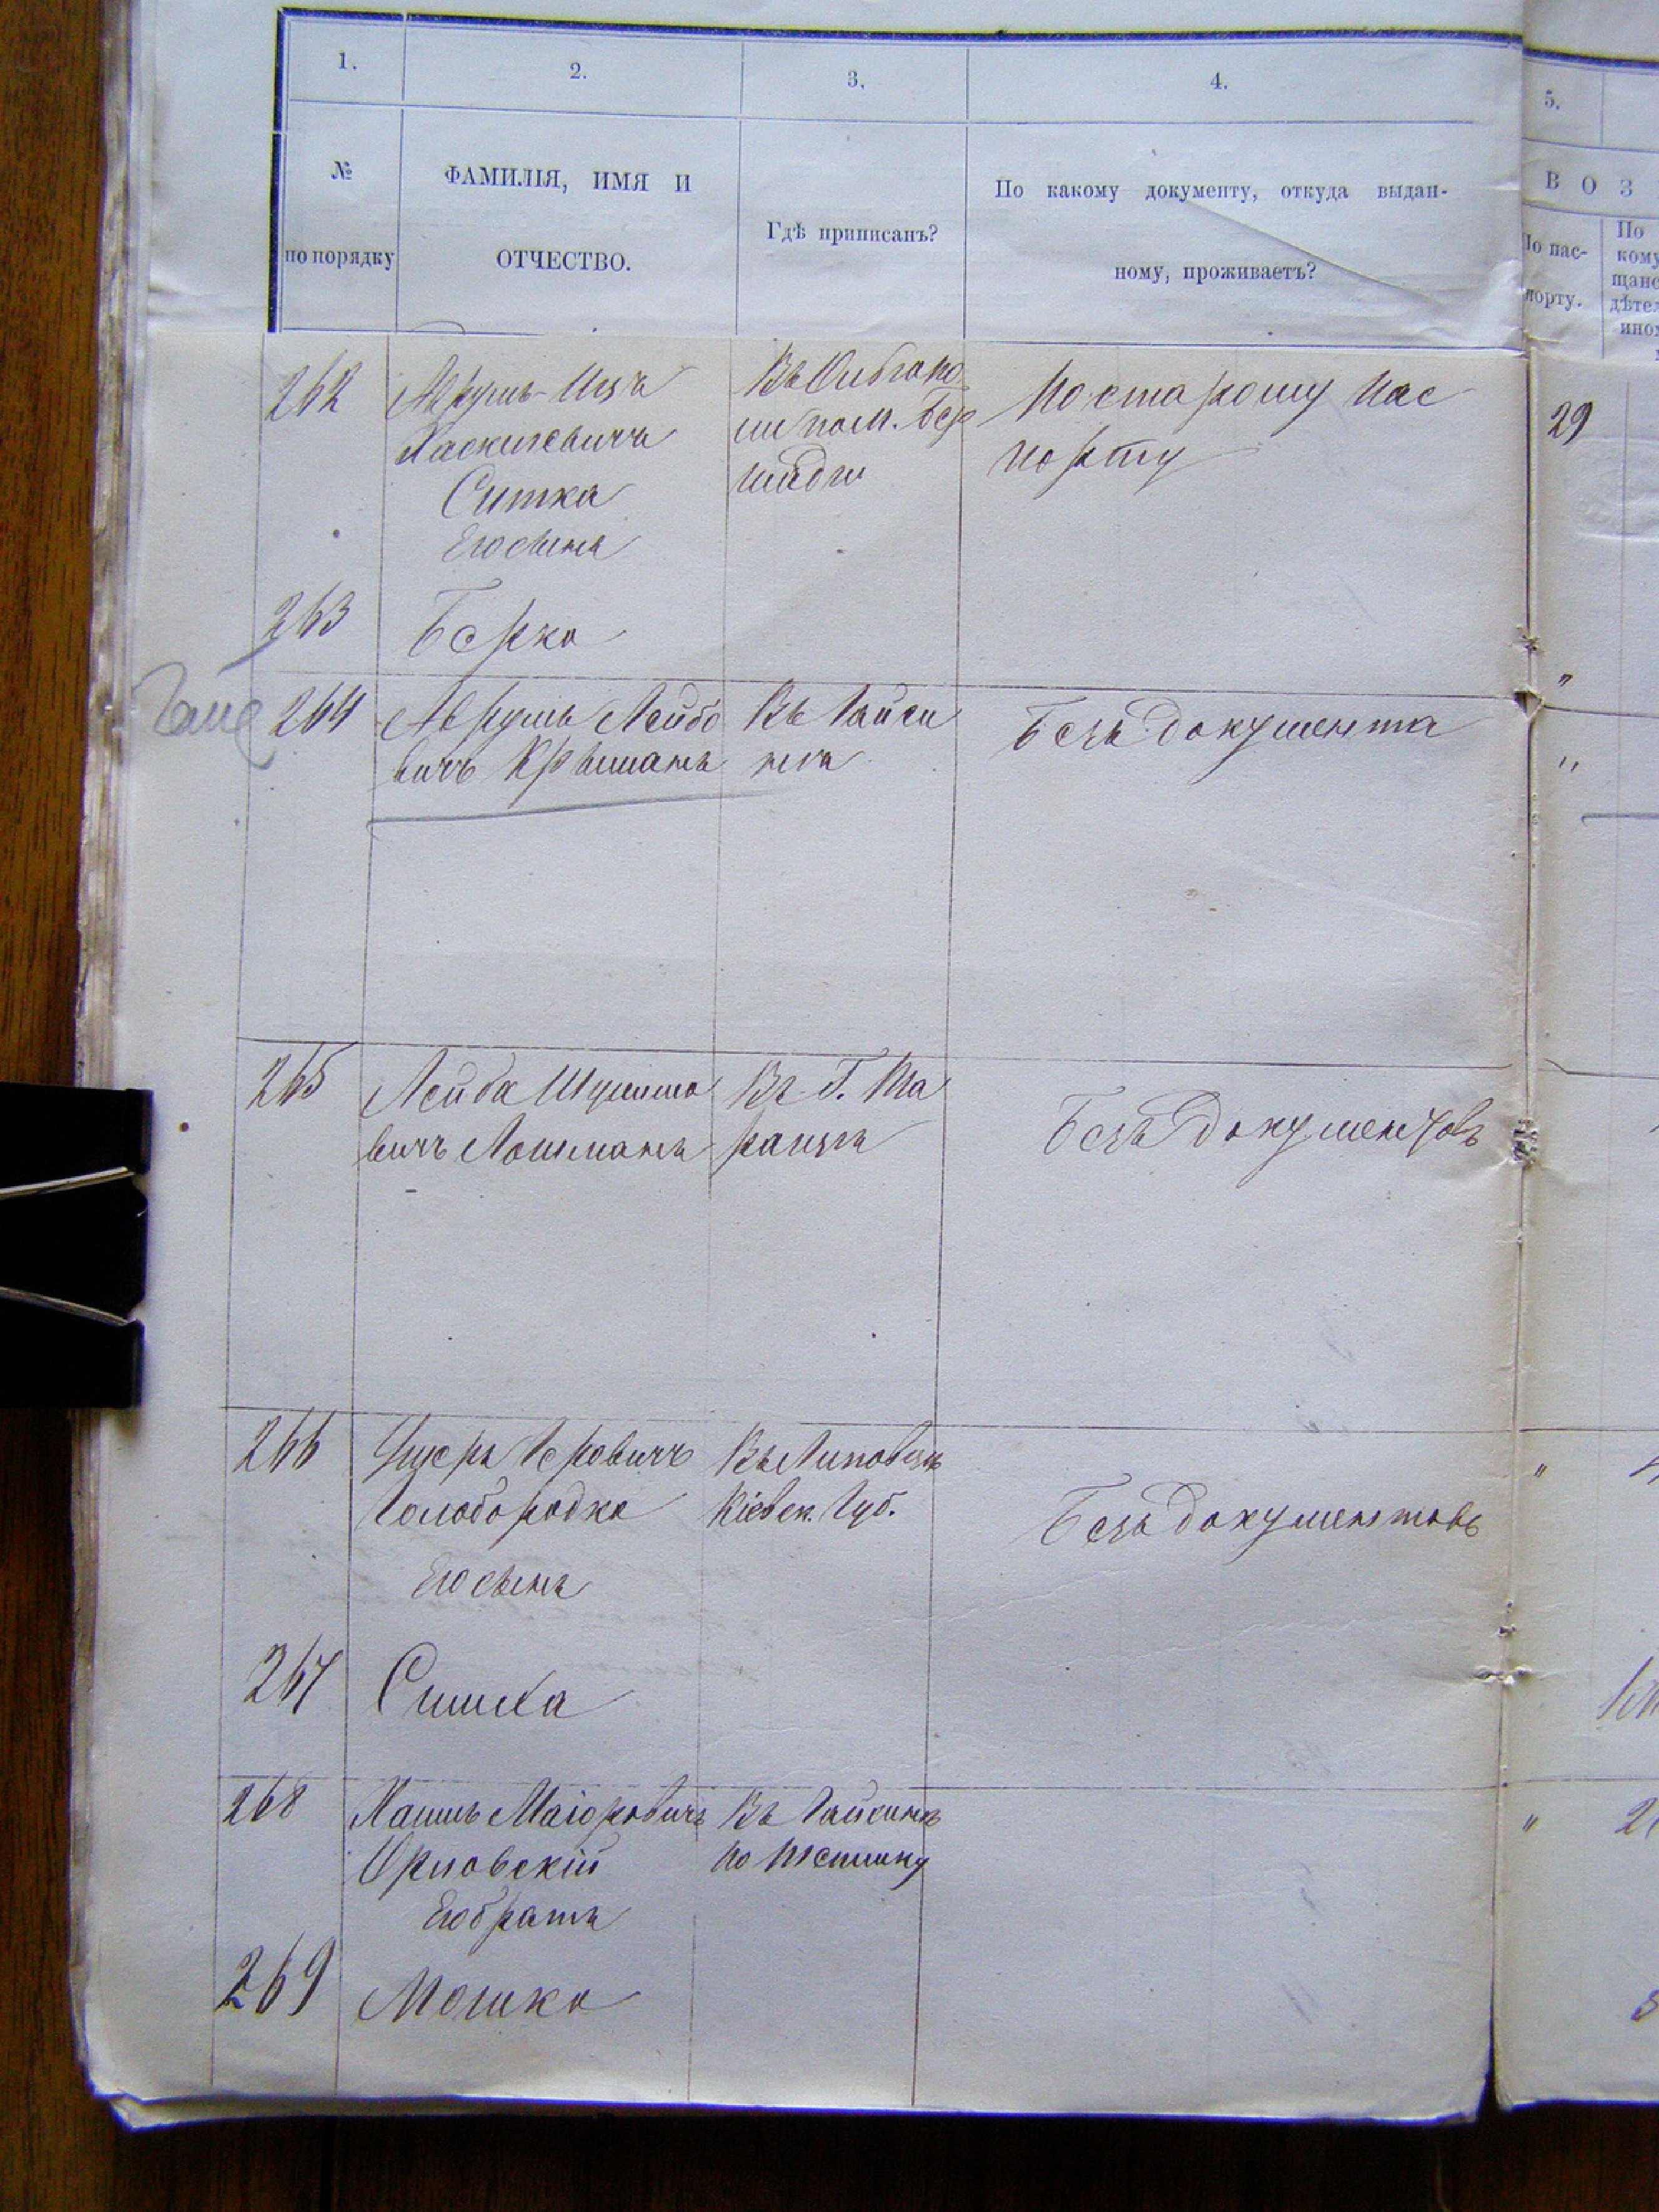 1.
2.
3.
4.
5.
№
по порядку
ФАМИЛІЯ, ИМЯ И
ОТЧЕСТВО.
Гдѣ приписанъ?
По какому документу, откуда выдан-
ному, проживаетъ?
В О З
По пас-
порту.
По
кому
щанс
дѣтел
иног
262
Аврумъ-Ицъ
Хаскелевичъ
Ситка
Его сынъ
Въ Ольгопо
ли пом. Бер
шадъ
По старому пас
порту
29
263
Берко
"
Гайс
264
Аврумъ Лейбо
вичъ Крышманъ
Въ Гайси
нѣ
Безъ документа
"
265
Лейба Шулимо
вичъ Лошманъ
Въ Г. Та
ращѣ
Безъ документовъ
266
Ушеръ Герowичъ
Голобородко
Его сынъ
Въ Липовцѣ
Кіевск. Губ.
Безъ документовъ
"
267
Симха
268
Хаимъ Маіоровичъ
Орловскій
Его братъ
Въ Гайсинѣ
по
"
2
269
Мошко